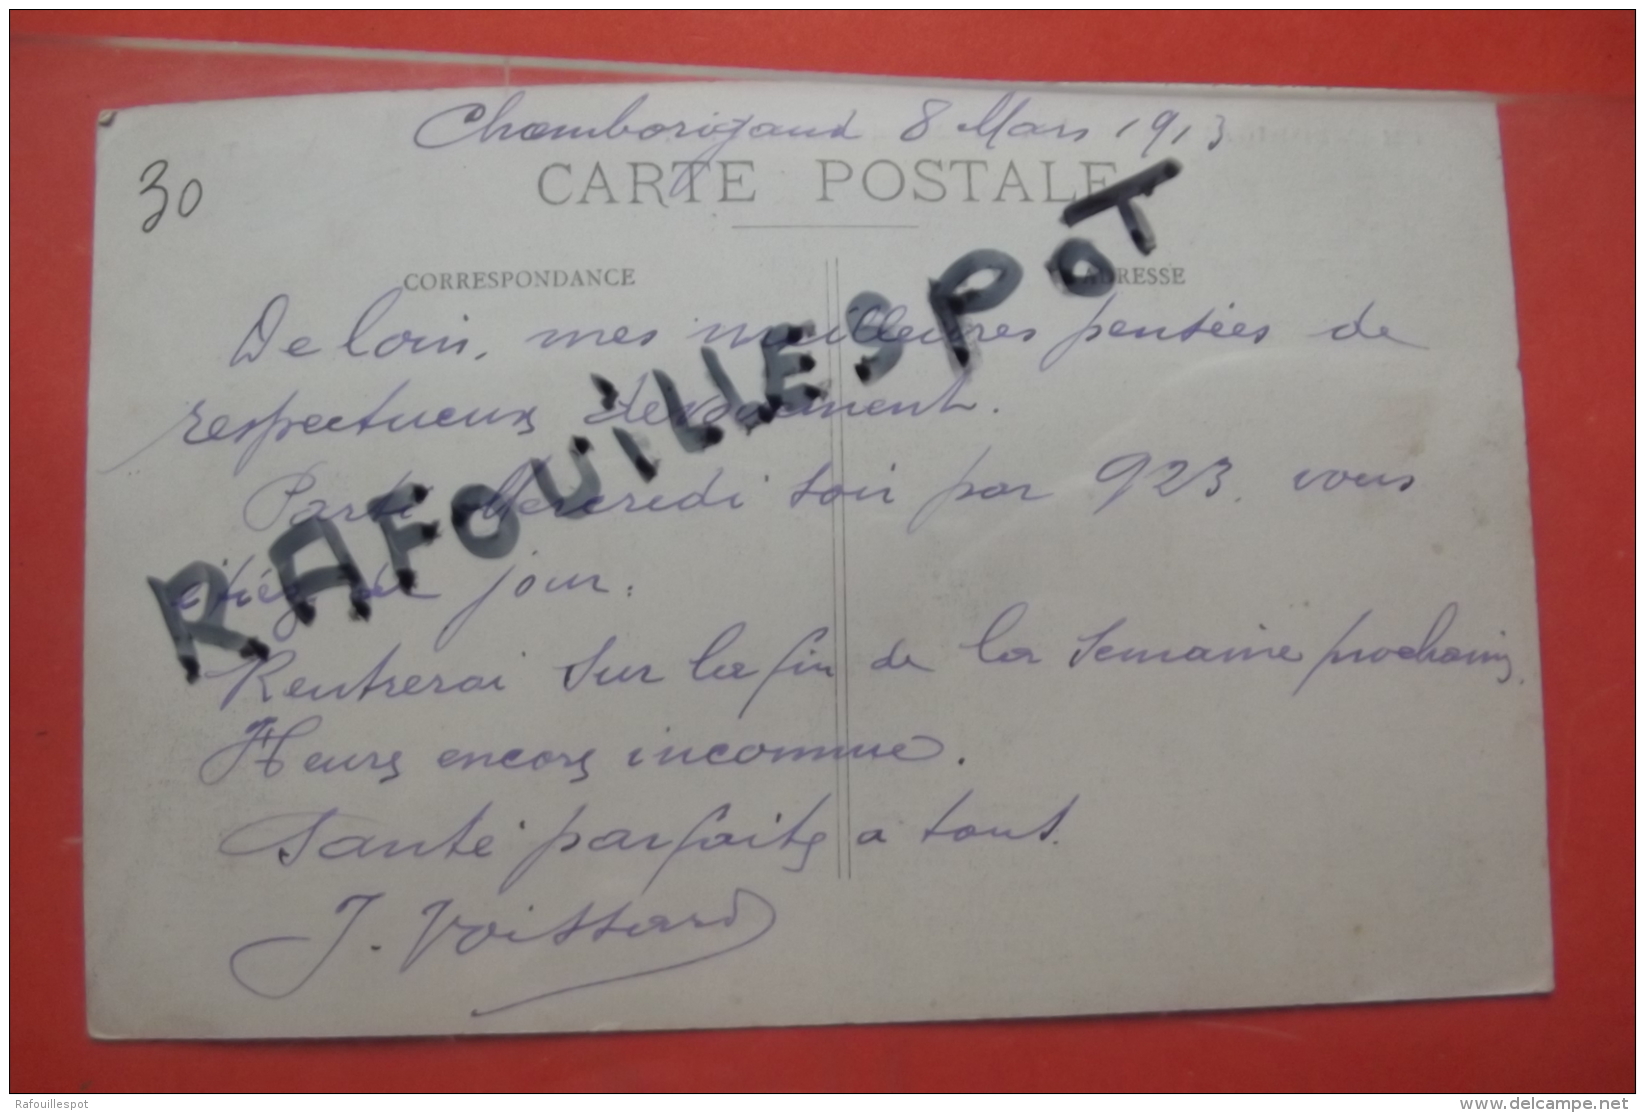 Chamborigaud 8 Mars 1913
30
CARTE POSTALE
CORRESPONDANCE
ADRESSE
De loin, mes meilleures pensées de
respectueux dévouement.
Parti Mercredi soir par 923. vous
étiez de jour.
Rentrerai sur la fin de la semaine prochaine.
Heure encore inconnue.
Santé parfaite a tous.
J. Voissard
RAFOUILLESPOT
Rafouillespot
delcampe.net